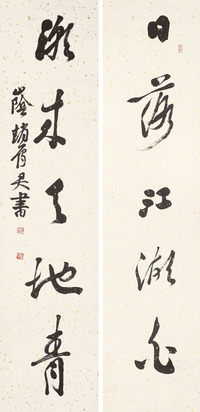 日落江湖白
潮來天地青
趙 書